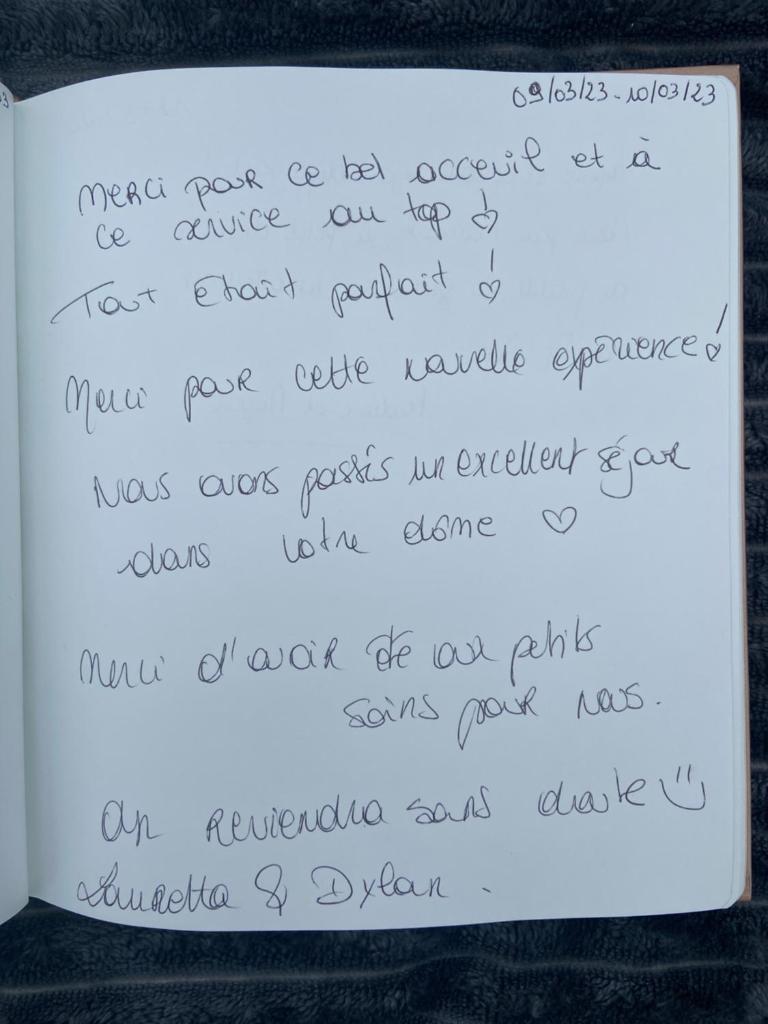 09/03/23-10/03/23
Merci pour ce bel acceuil et à
ce service au top !
Tout était parfait !
Merci pour cette nouvelle expérience !
Nous avons passés un excellent séjour
dans votre dôme ♡
Merci d'avoir été aux petits
soins pour nous.
On reviendra sans doute
Lauretta & Dylan.